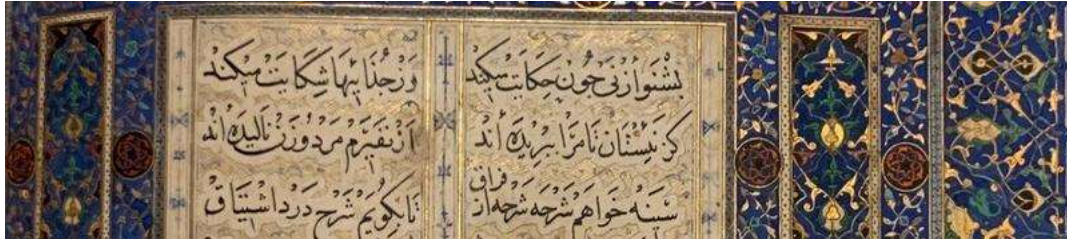 بشنو از نی چون حکایت میکند وز جداییها شکایت میکند
کز نیستان تا مرا ببریده اند از نفیرم مرد و زن نالیده اند
سینه خواهم شرحه شرحه از فراق تا بگویم شرح درد اشتیاق